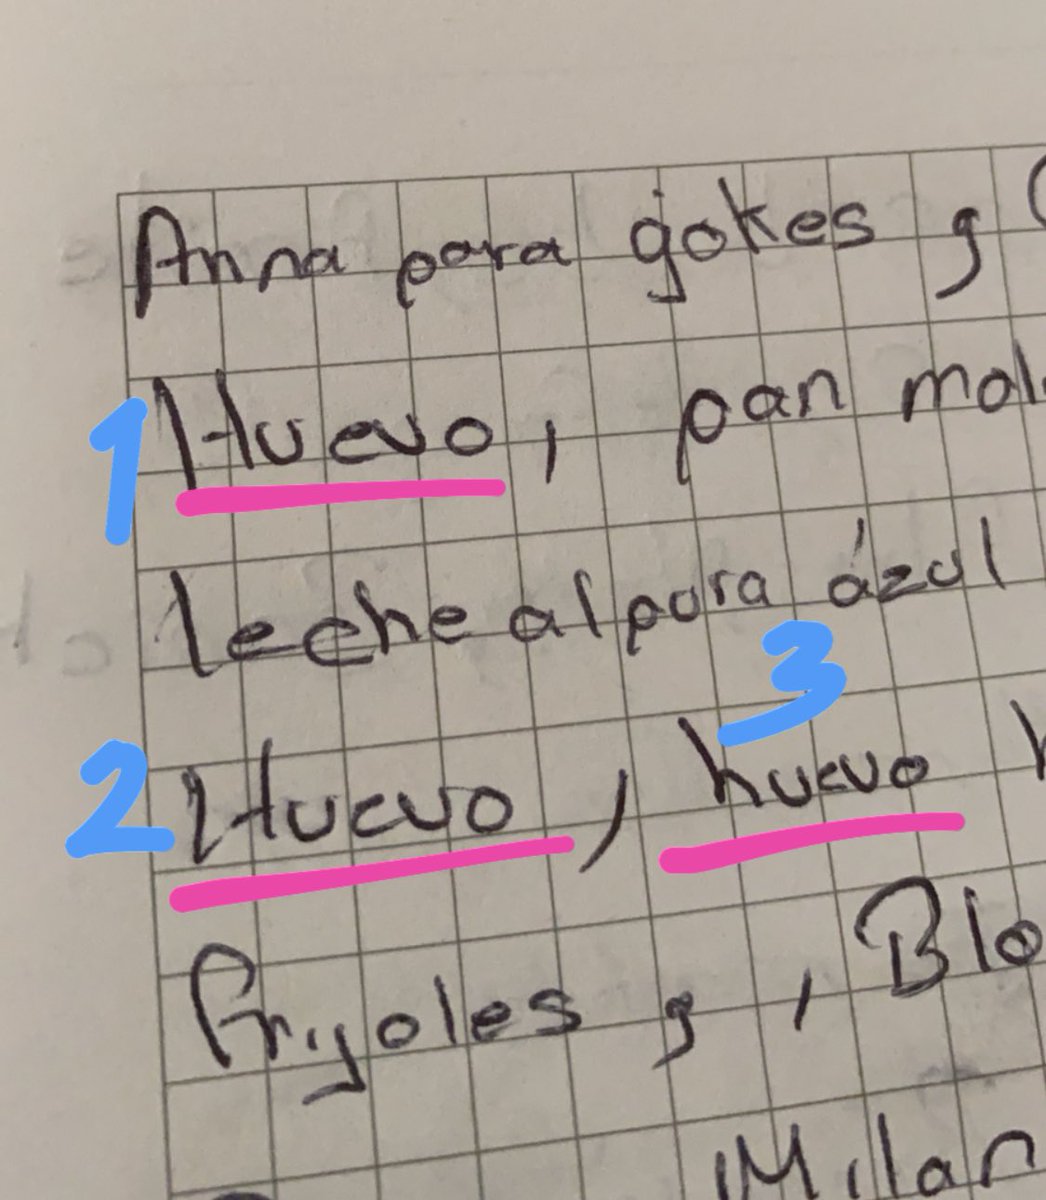 Anna para gokes g
1 Huevo, pan mol
leche alpura ázul
3
2 Huevo, huevo h
Fryoles g, Blo
Milan